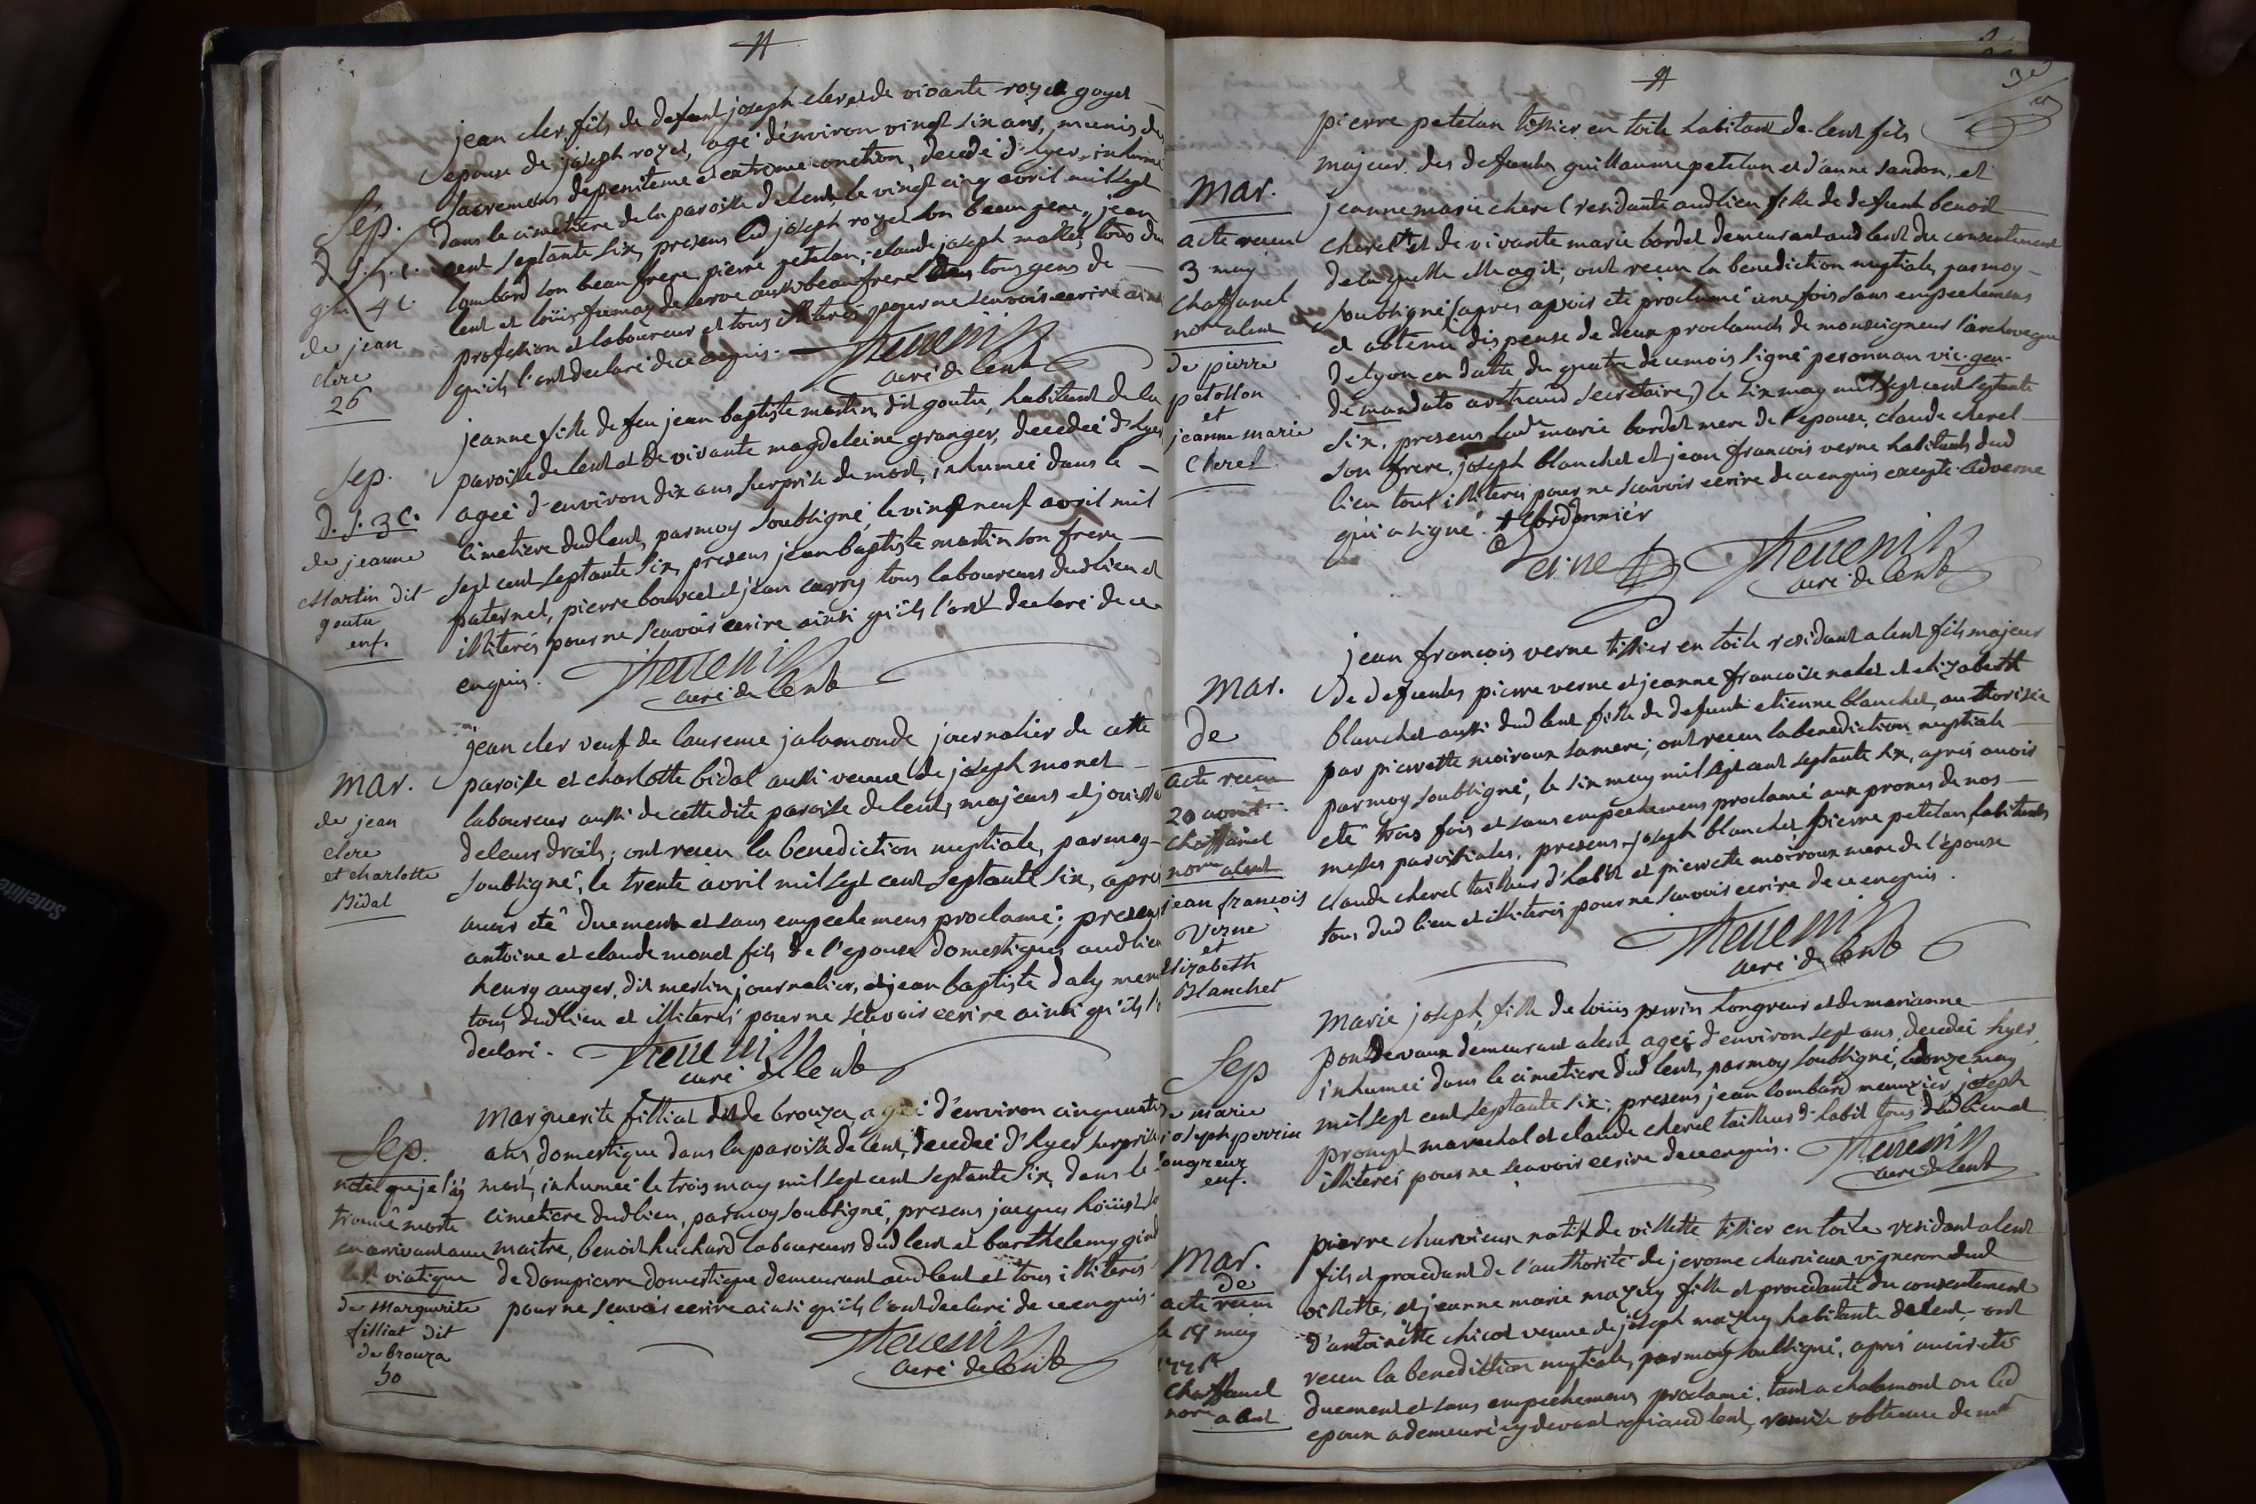 jean cler, fils de defunt joseph clerc et de vivante goyet
epouse de joseph royet, agé d'environ vingt six ans, munis des
sacremens de penitence et extreme onction, decedé d'hyer, inhumé
dans le cimetiere de la paroisse de lent, le vingt cinq avril mil sept
cent septante six, presens led joseph royet son beau pere, jean
lombard son beau frere, pierre petetan, claude joseph mallet tous dud
lent et loüis fumay de servas aussi beau frere tous gens de
profession et laboureur et tous illiterés pour ne scavoir ecrire ainsi
qu'ils l'ont declaré de ce enquis.
Thevenin
curé de lent
Sép.
de jean
clerc
26
jeanne fille de feu jean baptiste martin, dit goutu, habitant de la
paroisse de lent et de vivante magdeleine granger, decedée d'hyer
ageé d'environ dix ans surprise de mort, inhumée dans le
cimetiere dud lent, par moy soubsigné, le vingt neuf avril mil
sept cent septante six, presens jean baptiste martin son frere
paternel, pierre bouvret et jean carry tous laboureurs dud lieu et
illiterés pour ne scavoir ecrire ainsi qu'ils l'ont declaré de ce
enquis.
Thevenin
curé de lent
Sep.
d. s. 3 c.
de jeanne
Martin dit
goutu
enf.
jean cler veuf de laurence jalamonde journalier de cette
paroisse et charlotte bidal aussi veuve de joseph monet
laboureur aussi de cette dite paroisse de lent, majeurs et jouissa
de leurs droits; ont recu la benediction nuptiale, par moy
soubsigné, le trente avril mil sept cent septante six, apres
avoir eté duement et sans empechemens proclamé; presens
antoine et claude monet fils de l'epouse domestiques aud lieu
henry auger, dit merlin journalier, et jean baptiste daly
tous dud lieu et illiterés pour ne scavoir ecrire ainsi qu'ils l'
declaré.
Thevenin
curé de lent
mar.
de jean
clerc
et charlotte
Bidal
Marguerite filliat dit de brouza, agée d'environ cinquante
ans, domestique dans la paroisse de lent, decedeé d'hyer surprise
mort, inhumeé le trois may mil sept cent septante six, dans le
cimetiere dud lieu, par moy soubsigné, presens jacques
maitre, benoit huchard laboureurs dud lent et barthelemy
de dompierre domestique demeurant aud lent et tous illiterés
pour ne scavoir ecrire ainsi qu'ils l'ont declaré de ce enquis.
Thevenin
curé de lent
Sep.
nota que je l'ay
trouvé morte
en arrivant avec
le viatique
de Marguerite
filliat dit
de brouza
50
pierre petetan tissier en toile habitant de lent fils
majeur des defunts guillaume petetan et d'anne sandon, et
jeanne marie cherel residante aud lieu fille de defunt benoit
cherel + et de vivante marie bordet demeurant aud lent du consentement
de laquelle elle agit; ont recu la benediction nuptiale, par moy
soubsigné (apres avoir eté proclamé une fois sans empechemens
et obtenu dispense de deux proclamats de monseigneur l'archeveque
de lyon en datte du quatre de ce mois signé peronnau vic. gen.
de mandato arthaud secretaire) le six may mil sept cent septante
six, presens lad marie bordet mere de l'epouse, claude cherel
son frere, joseph blanchet et jean francois verne habitants dud
lieu tout illiterés pour ne scavoir ecrire de ce enquis excepté led verne
qui a signé. + cordonnier
Verne
Thevenin
curé de lent
Mar.
acte recu
3 may
Chaffanel
nore a lent
de pierre
petetton
et
jeanne marie
Cherel
jean françois verne tissier en toile residant a lent fils majeur
de defunts pierre verne et jeanne francoise nalet et elizabeth
blanchet aussi dud lent fille de defunt etienne blanchet, authorisée
par pierrette moiroux sa mere; ont recu la benediction nuptiale
par moy soubsigné, le six may mil sept cent septante six, après avoir
eté trois fois et sans empechemens proclamé aux prones de nos
messes paroissiales, presens joseph blanchet, pierre petetan habitants
claude cherel tailleur d'habit et pierrette moiroux mere de l'epouse
tous dud lieu et illiterés pour ne scavoir ecrire de ce enquis.
Thevenin
curé de lent
Mar.
de
acte recu
20 avril
Chaffanel
nore a lent
jean françois
Verne
et
Elizabeth
Blanchet
Marie joseph, fille de loüis perrin hongreur et de marianne
pondevaux demeurant a lent ageé d'environ sept ans, decedeé hyer,
inhumeé dans le cimetiere dud lent, par moy soubsigné, le onze may
mil sept cent septante six; presens jean lombard menuzier, joseph
prompt marechal et claude cherel tailleur d'habit tous dud lieu et
illiterés pour ne scavoir ecrire de ce enquis.
Thevenin
curé de lent
Sep
de marie
joseph perrin
hongreur
enf.
pierre charvieux natif de villette tissier en toile residant a lent
fils et procedant de l'authorité de jerome charvieux vigneron dud
villette, et jeanne marie mazuy fille et procedante du consentement
d'antoinette chicot veuve de joseph mazuy habitante de lent, ont
recu la benediction nuptiale, par moy soubsigné, après avoir eté
duement et sans empechemens proclamé, tant a chalamont ou led
epoux a demeuré cy devant aud lent, remise obtenue de
Mar.
de
acte recu
le 19 may
Chaffanel
nore a lent